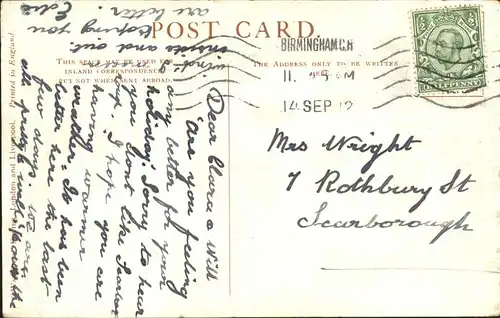 POST CARD.
THIS SPACE MAY BE USED FOR
INLAND CORRESPONDENCE
BUT NOT WHEN SENT ABROAD.
THE ADDRESS ONLY TO BE WRITTEN
HERE.
BIRMINGHAM
11 15 PM
14 SEP 12
HALFPENNY
London and Liverpool. Printed in England.
Mrs Wright
7 Rothbury St
Scarborough
Dear Clara & Will
Are you feeling
any better for your
holiday. Sorry to hear
you don't like Scarboro
boy. I hope you are
having warmer
weather. It has been
better here the last
few days. We are
all pretty well, to over the
winds
and out
hoping you
are better. Edie